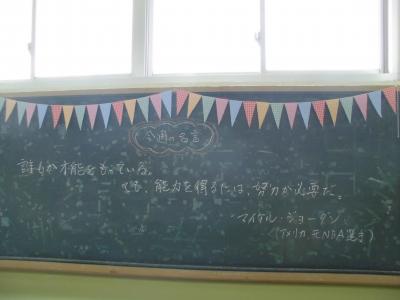 今週の名言
誰もが才能をもっている。
でも、能力を得るには、努力が必要だ。
マイケル・ジョーダン
(アメリカ 元NBA選手)